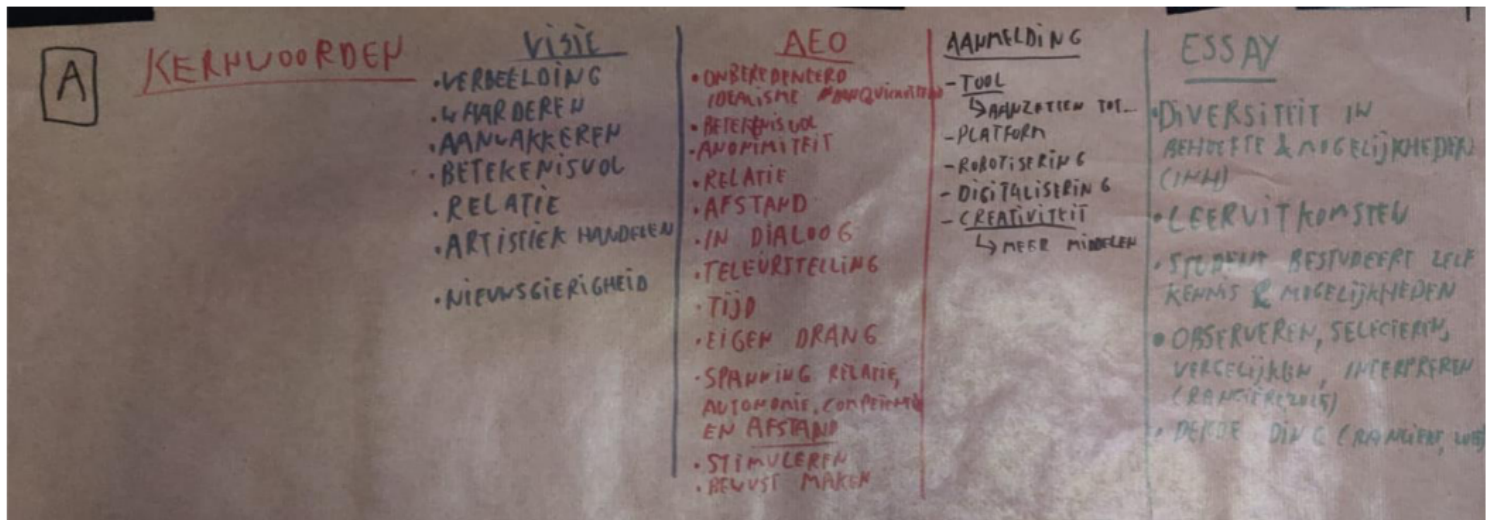 A
KERNWOORDEN
VISIE
• VERBEELDING
• WAARDEREN
• AANWAKKEREN
• BETEKENISVOL
• RELATIE
• ARTISTIEK HANDELEN
• NIEUWSGIERIGHEID
AEO
• ONBEREDENEERD
IDEALISME
• BETEKENISVOL
• ANONIMITEIT
• RELATIE
• AFSTAND
• IN DIALOOG
• TELEURSTELLING
• TIJD
• EIGEN DRANG
• SPANNING RELATIE,
AUTONOMIE, COMPETENTIE
EN AFSTAND
• STIMULEREN
• BEWUST MAKEN
AANMELDING
- TOOL
↳ AANZETTEN TOT...
- PLATFORM
- ROBOTISERING
- DIGITALISERING
- CREATIVITEIT
↳ MEER MIDDELEN
ESSAY
• DIVERSITEIT IN
BEHOEFTE & MOGELIJKHEDEN
• LEERUITKOMSTEN
• STUDENT BESTUDEERT ZELF
KENNIS & MOGELIJKHEDEN
• OBSERVEREN, SELECTEREN,
VERGELIJKEN, INTERPREREN
(RANCIÈRE, 2015)
• DERDE DING (RANCIÈRE, 2015)